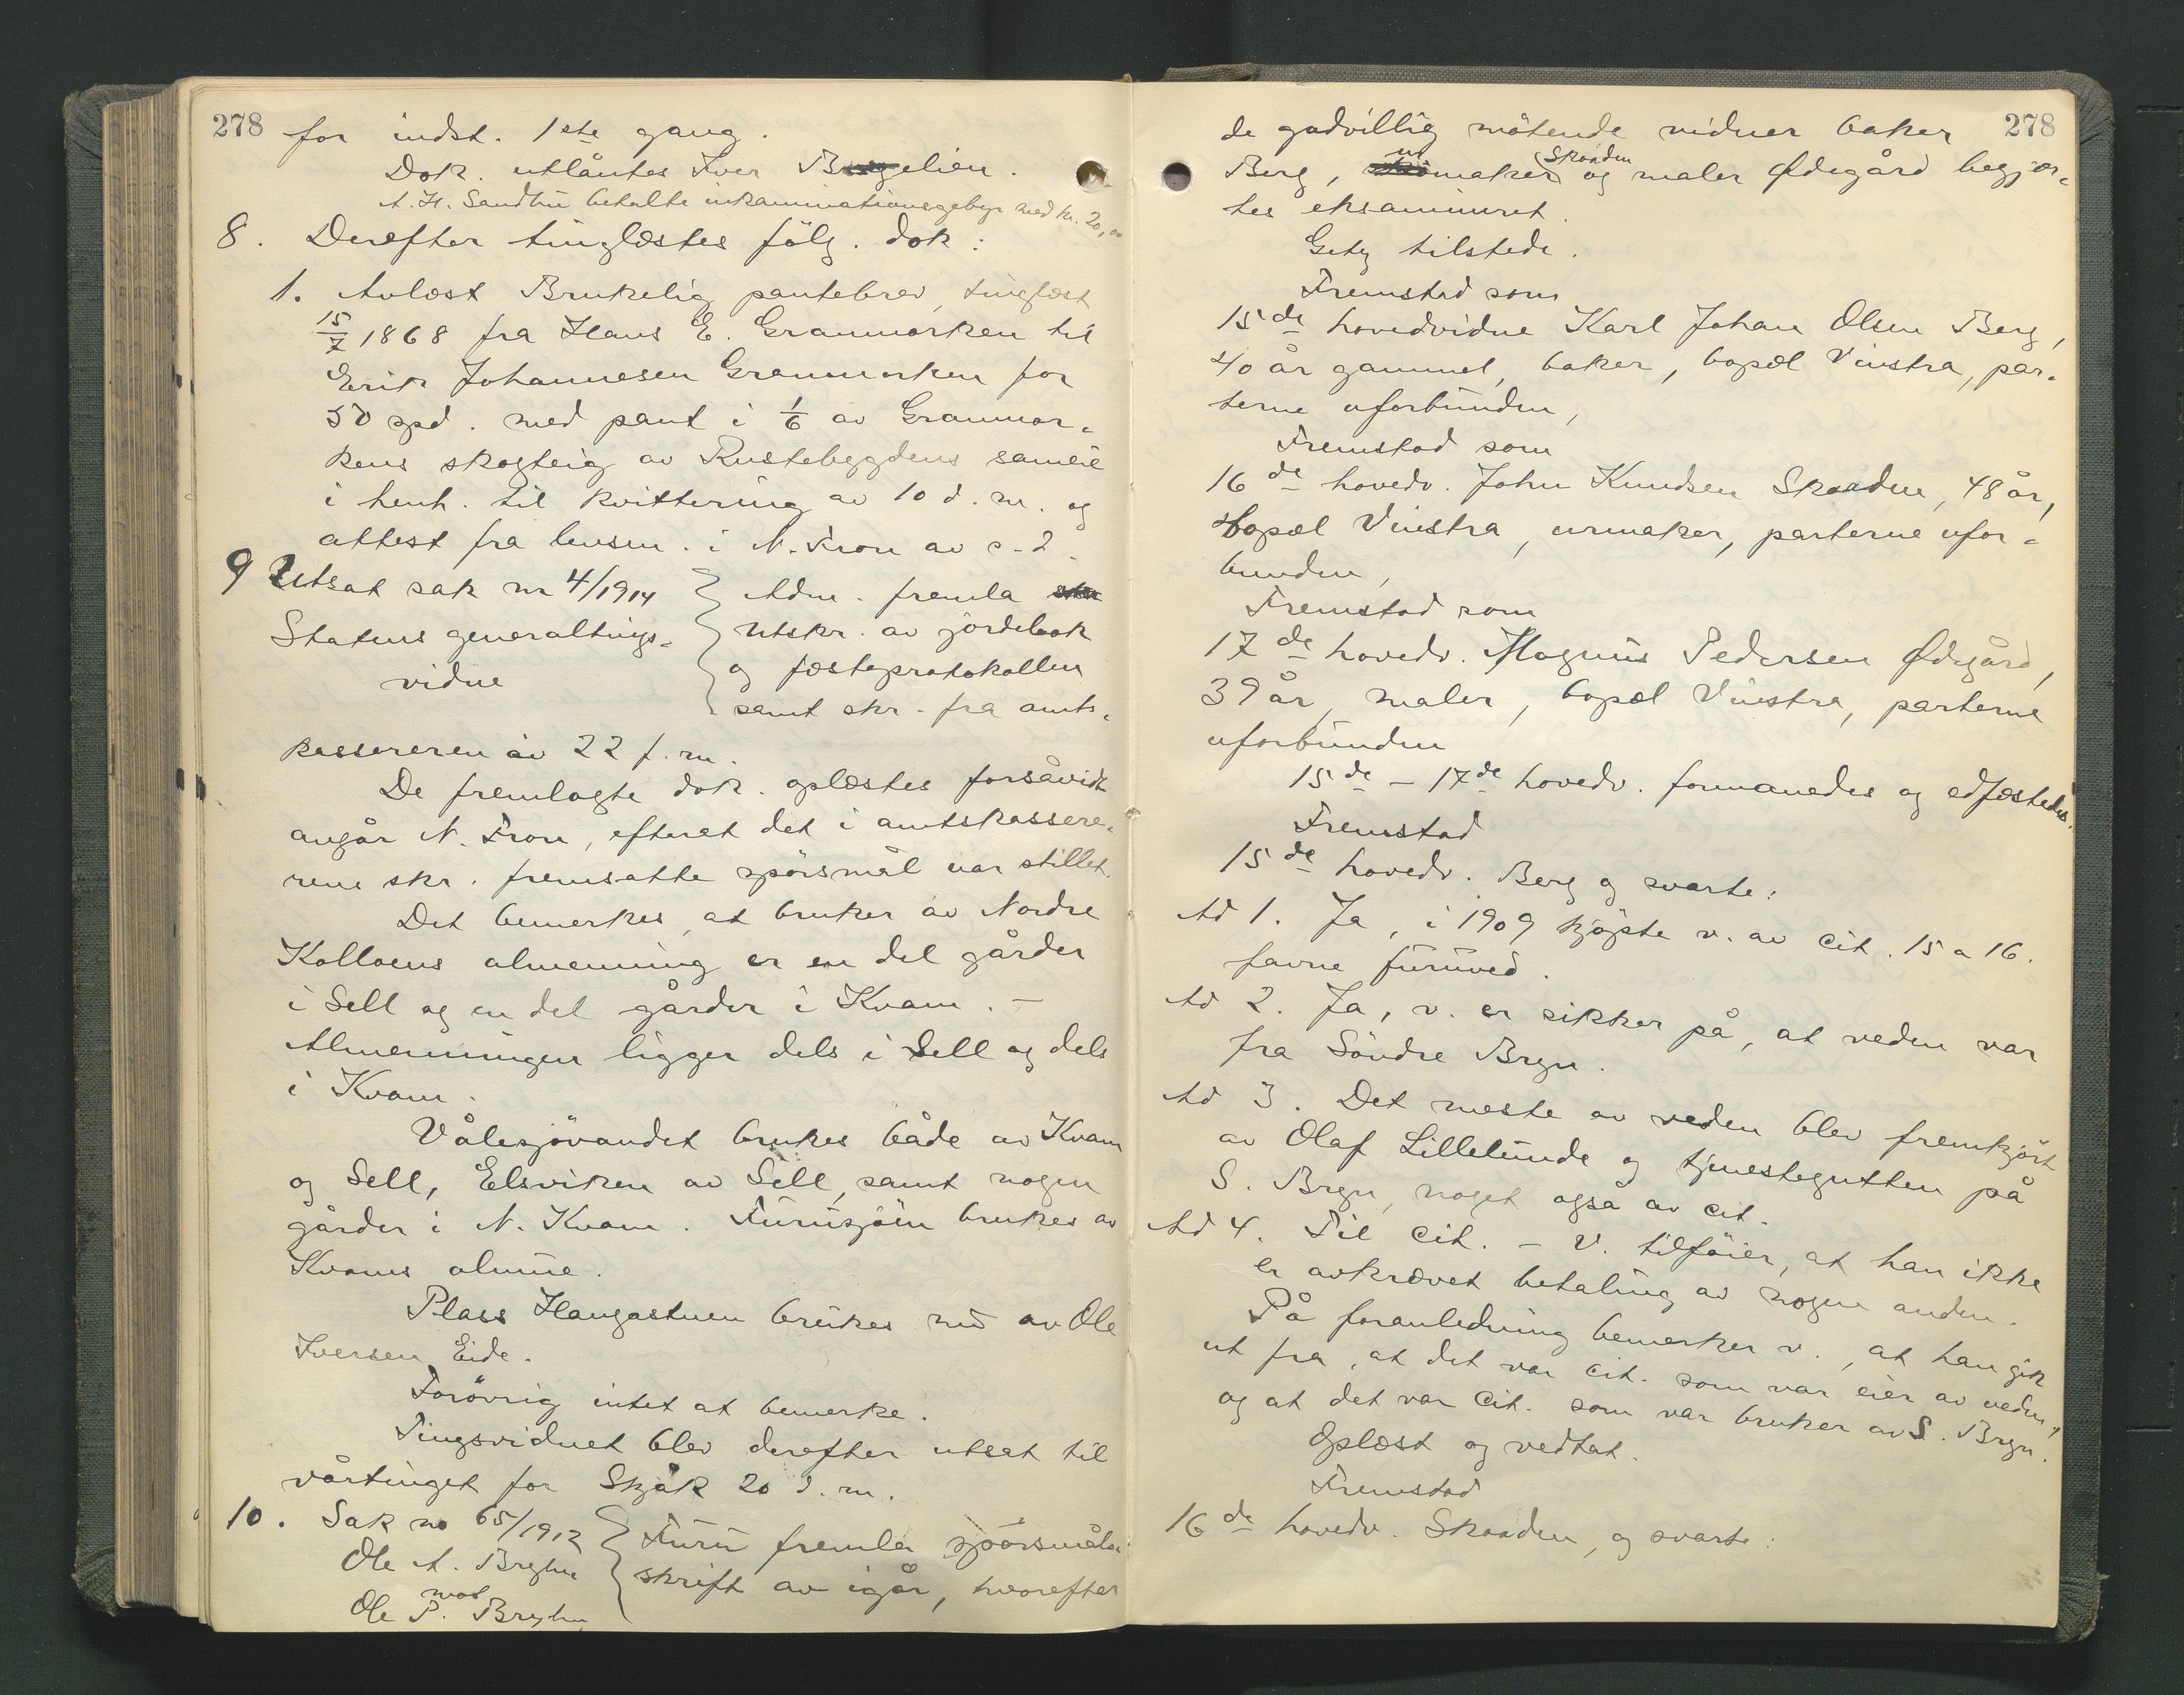 278
for indst. 1ste gang.
Dok. utlåntes Iver Bergelien.
A. H. Sandbu betalte inkaminationsgebyr med kr. 20,00
8. Derefter tinglæstes følg. dok:
1. Avlæst Brukelig pantebrev, tinglæst
15/7 1868 fra Hans E. Granmorken til
Erik Johannesen Granmorken for
50 spd. med pant i 1/6 av Granmor-
kens skogteig av Rustebygdens sameie
i henh. til kvittering av 10 d. m. og
attest fra lensm. i N. Fron av s. d.
9 Utsat sak nr 4/1914
Statens generaltings-
vidne
Adm. fremla
utskr. av jordebok
og fæsteprotokollen
samt skr. fra amts-
kassereren av 22 f. m.
De fremlagte dok. oplæstes forsåvidt
angår N. Fron, efterat det i amtskassere-
rens skr. fremsatte spörsmål var stillet.
Det bemerkes, at bruker av Nordre
Kolloens almenning er en del gårder
i Sell og en del gårder i Kvam. –
Almenningen ligger dels i Sell og dels
i Kvam.
Vålesjövandet brukes både av Kvam
og Sell, Elsviken av Sell, samt nogen
gårder i N. Kvam. Furusjöen brukes av
Kvams almue.
Plass Haugastuen brukes nu av Ole
Iversen Eide.
Forövrig intet at bemerke.
Tingsvidnet blev derefter utsat til
vårtinget for Skjåk 20 d. m.
10. Sak no 65/1912
Ole A. Bryhn
mot
Ole P. Bryhn
Furu fremla spörsmåls-
skrift av igår, hvorefter
278
de godvillig mötende vidner baker
Berg, urmaker Skaaden og maler Ødegård begjær-
tes eksamineret.
Getz tilstede.
Fremstod som
15de hovedvidne Karl Johan Olsen Berg,
40 år gammel, baker, bopæl Vinstra, par-
terne uforbunden,
Fremstod som
16de hovedv. John Knudsen Skaaden, 48 år,
bopæl Vinstra, urmaker, parterne ufor-
bunden,
Fremstod som
17de hovedv. Magnus Pedersen Ødegård,
39 år, maler, bopæl Vinstra, parterne
uforbunden
15de – 17de hovedv. formanedes og edfæstedes.
Fremstod
15de hovedv. Berg og svarte:
Ad 1. Ja, i 1909 kjöpte v. av cit. 15 a 16.
favne furuved.
Ad 2. Ja, v. er sikker på, at veden var
fra Söndre Bryn.
Ad 3. Det meste av veden blev fremkjört
av Olaf Lillelunde og tjenestegutten på
S. Bryn, noget også av cit.
Ad 4. Til cit. – V. tilföier, at han ikke
er avkrævet betaling av nogen anden.
På foranledning bemerker v., at han gik
ut fra, at det var cit. som var eier av veden,
og at det var cit. som var bruker av S. Bryn.
Oplæst og vedtat.
Fremstod
16de hovedv. Skaaden, og svarte: